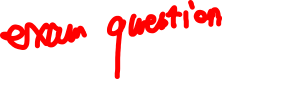 exam question